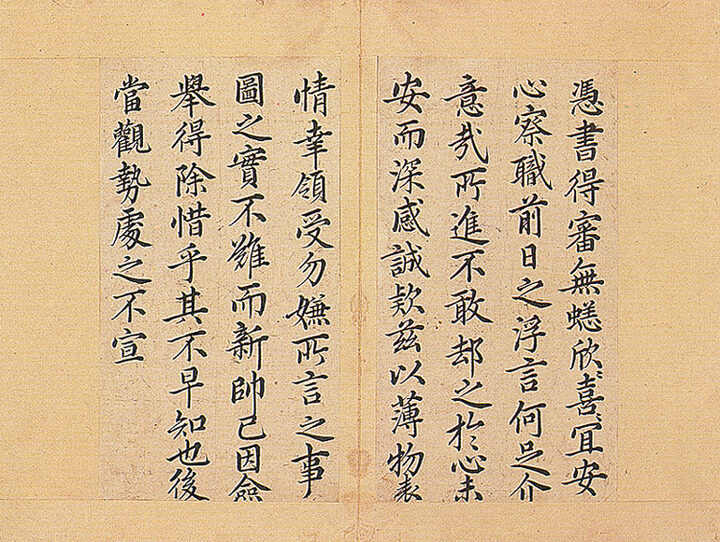 憑書得審無蟋欣喜宜安
心察職前日之浮言何足介
意哉所進不敢却之於心未
安而深感誠款茲以薄物表
情幸領受勿嫌所言之事
圖之實不難而新帥已因僉
舉得除惜乎其不早知也後
當觀勢處之不宣